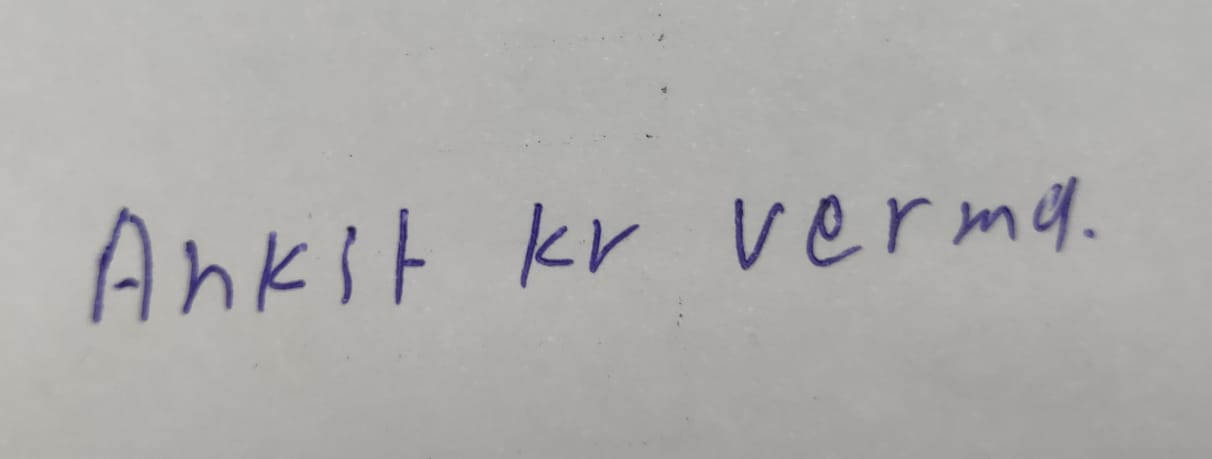 Ankit kr verma.